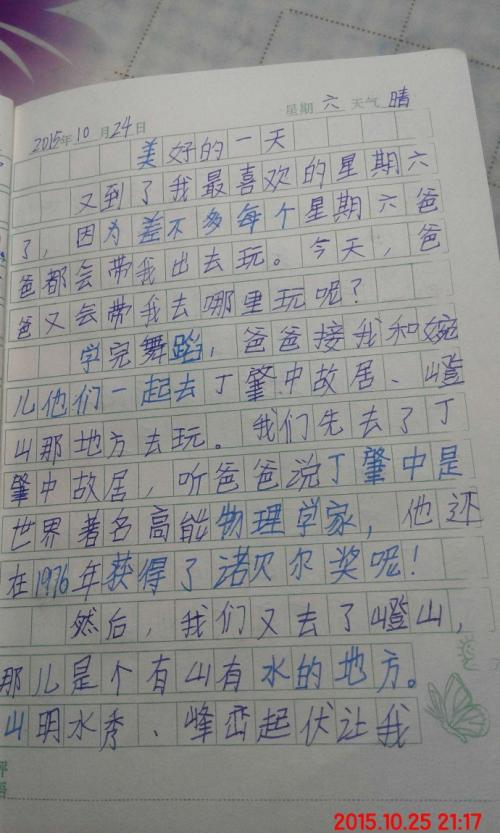 星期 六 天气 晴
2015年10月24日
美好的一天
又到了我最喜欢的星期六
了，因为差不多每个星期六爸
爸都会带我出去玩。今天，爸
爸又会带我去哪里玩呢？
学完舞蹈，爸爸接我和婉
儿他们一起去丁肇中故居、嶝
山那地方去玩。我们先去了丁
肇中故居，听爸爸说丁肇中是
世界著名高能物理学家，他还
在1976年获得了诺贝尔奖呢！
然后，我们又去了嶝山，
那儿是个有山有水的地方。
山明水秀、峰峦起伏让我
评
语
2015.10.25 21:17